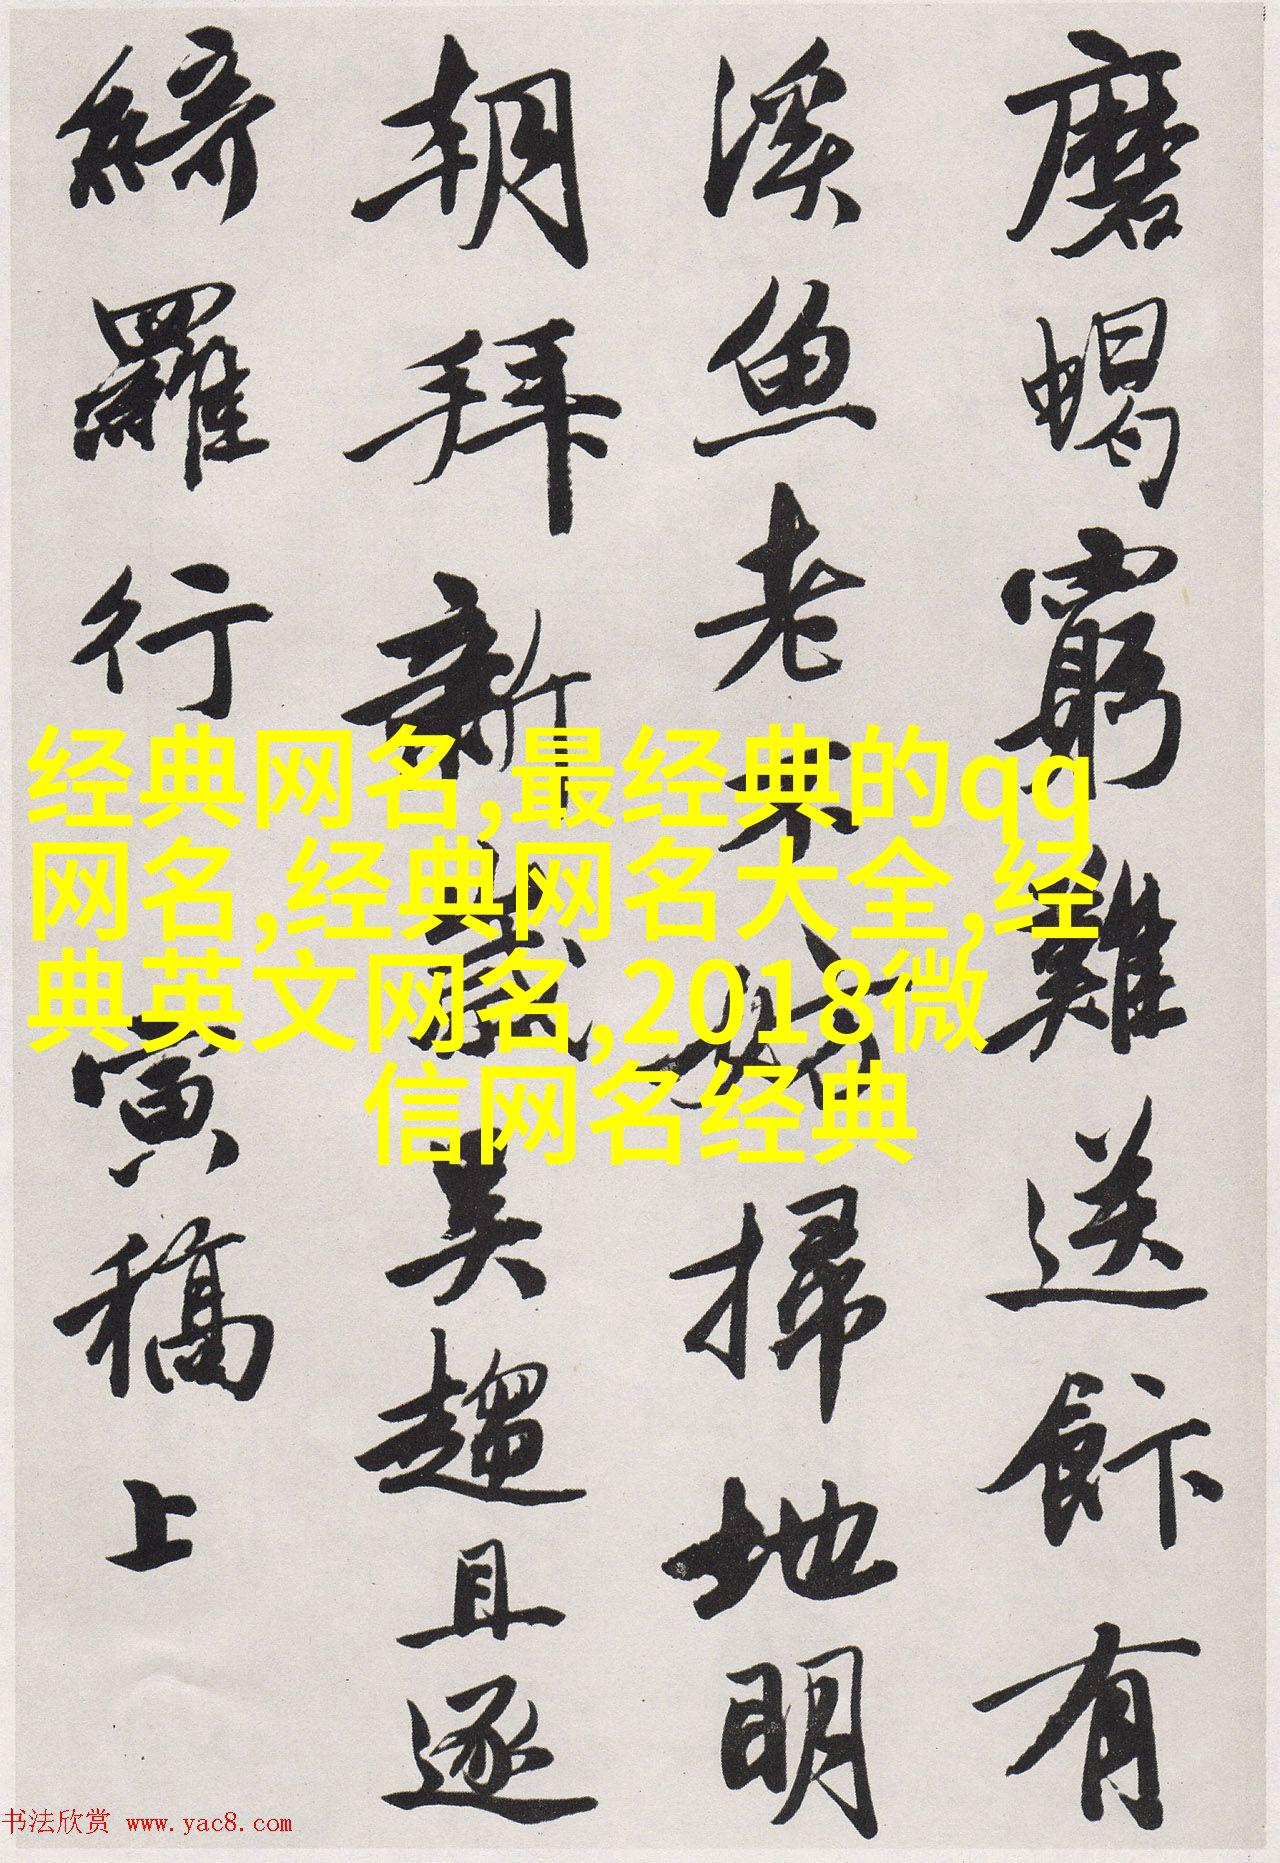 磨蝎窮難送餅有
溪魚老不妨掃地明
朝拜新歲異趨且逐
綺羅行
寅稿上
经典网名,最经典的qq
网名,经典网名大全,经
典英文网名,2018微
信网名经典
书法欣赏 www.yac8.com